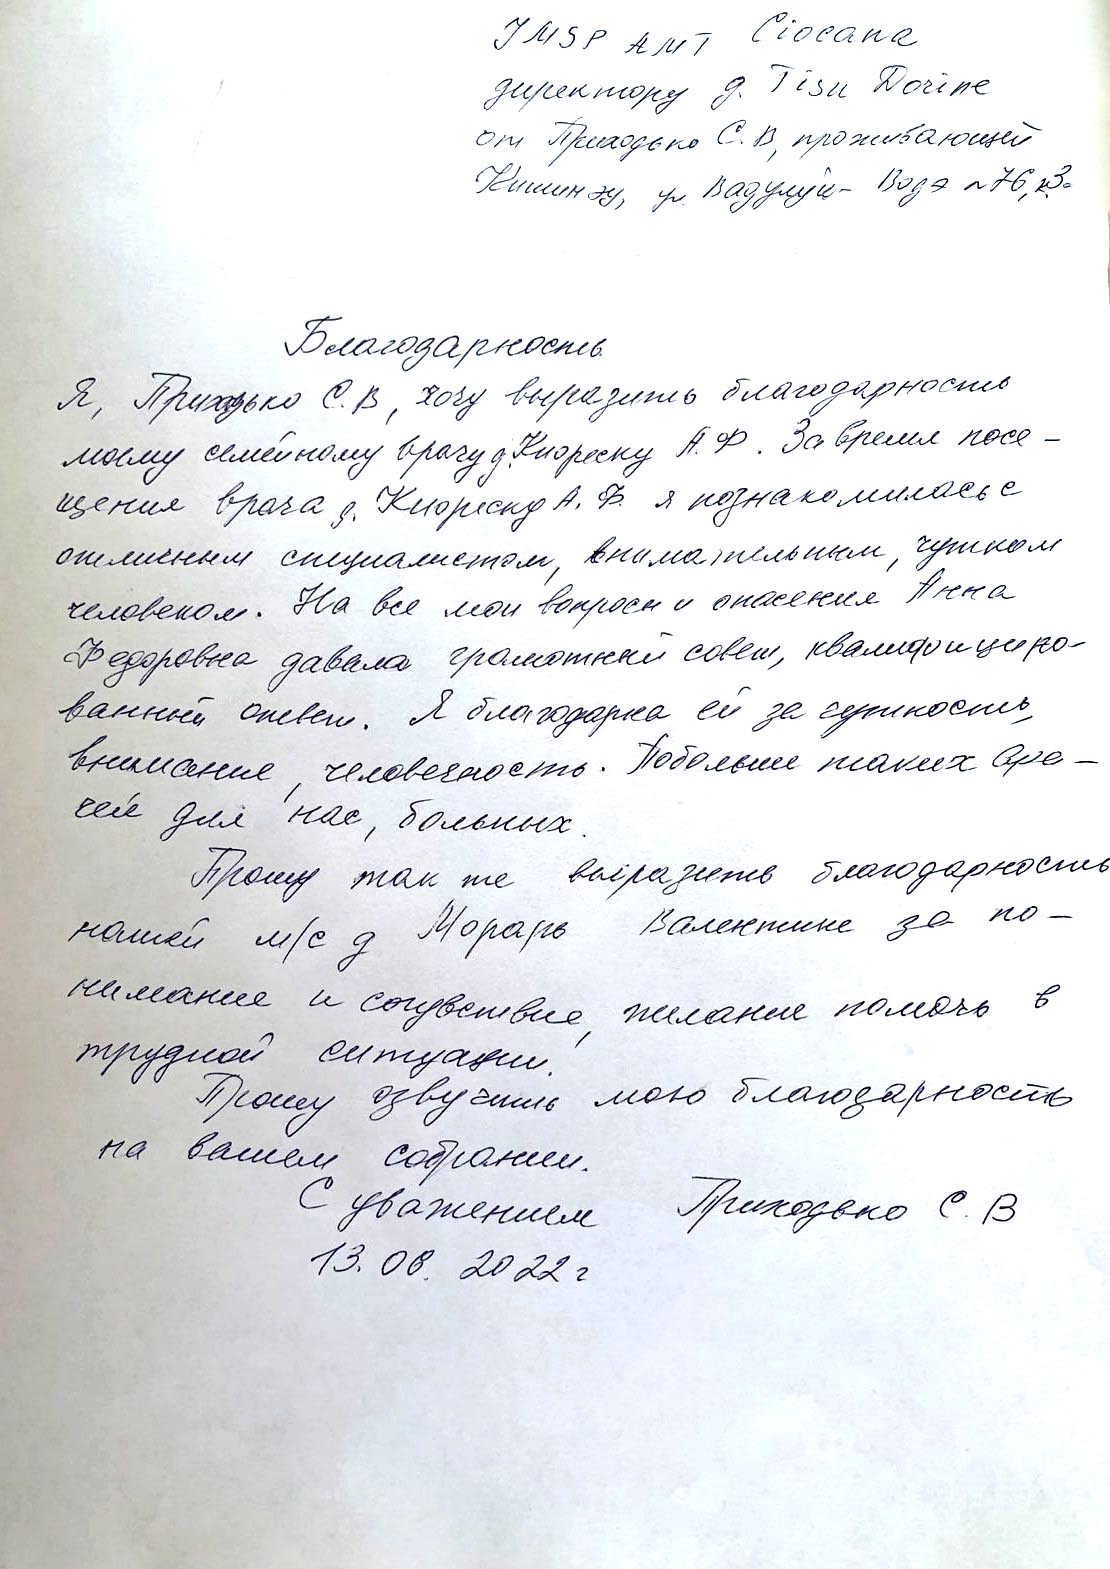 IMSP AMT Ciocana
директору д. Tisu Dorine
от Приходько С. В, проживающей
Кишинэу, ул. Вадулуй - Водэ № 76, к3.
Благодарность
Я, Приходько С. В, хочу выразить благодарность
моему семейному врачу д. Кнореску А. Ф. За время посе-
щения врача д. Кнореску А. Ф. я познакомилась с
отличным специалистом, внимательным, чутким
человеком. На все мои вопросы и опасения Анна
Федоровна давала грамотный совет, квалифициро-
ванный ответ. Я благодарна ей за чуткость,
внимание, человечность. Побольше таких вра-
чей для нас, больных.
Прошу так же выразить благодарность
нашей м/с д Морарь Валентине за по-
нимание и сочувствие, желание помочь в
трудной ситуации.
Прошу озвучить мою благодарность
на вашем собрании.
С уважением Приходько С. В
13.08. 2022 г